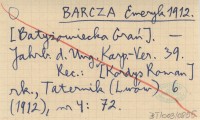 BARCZA Emeryk 1912.
[Batyżowiecka Grań]. —
Jahrb. d. Ung. Karp.-Ver. 39.
Rec.: [Kordys Roman]
rk., Taternik (Lwów) 6
(1912), nr 4: 72.